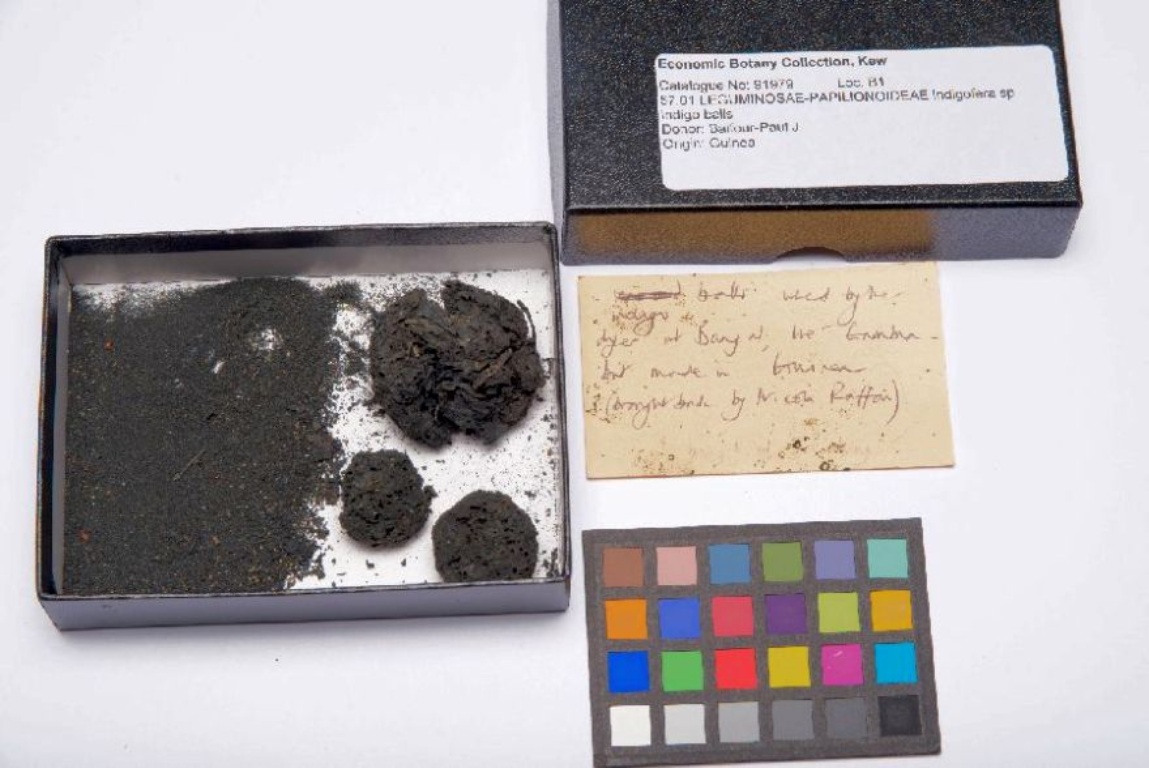 Economic Botany Collection, Kew
Catalogue No: 91979 Loc: B1
57.01 LEGUMINOSAE-PAPILIONOIDEAE Indigofera sp
Indigo balls
Donor: Balfour-Paul J
Origin: Guinea
balls used by the
indigo
dyer at Banjul, the Gambia -
but made in Guinea
(brought back by Nicola